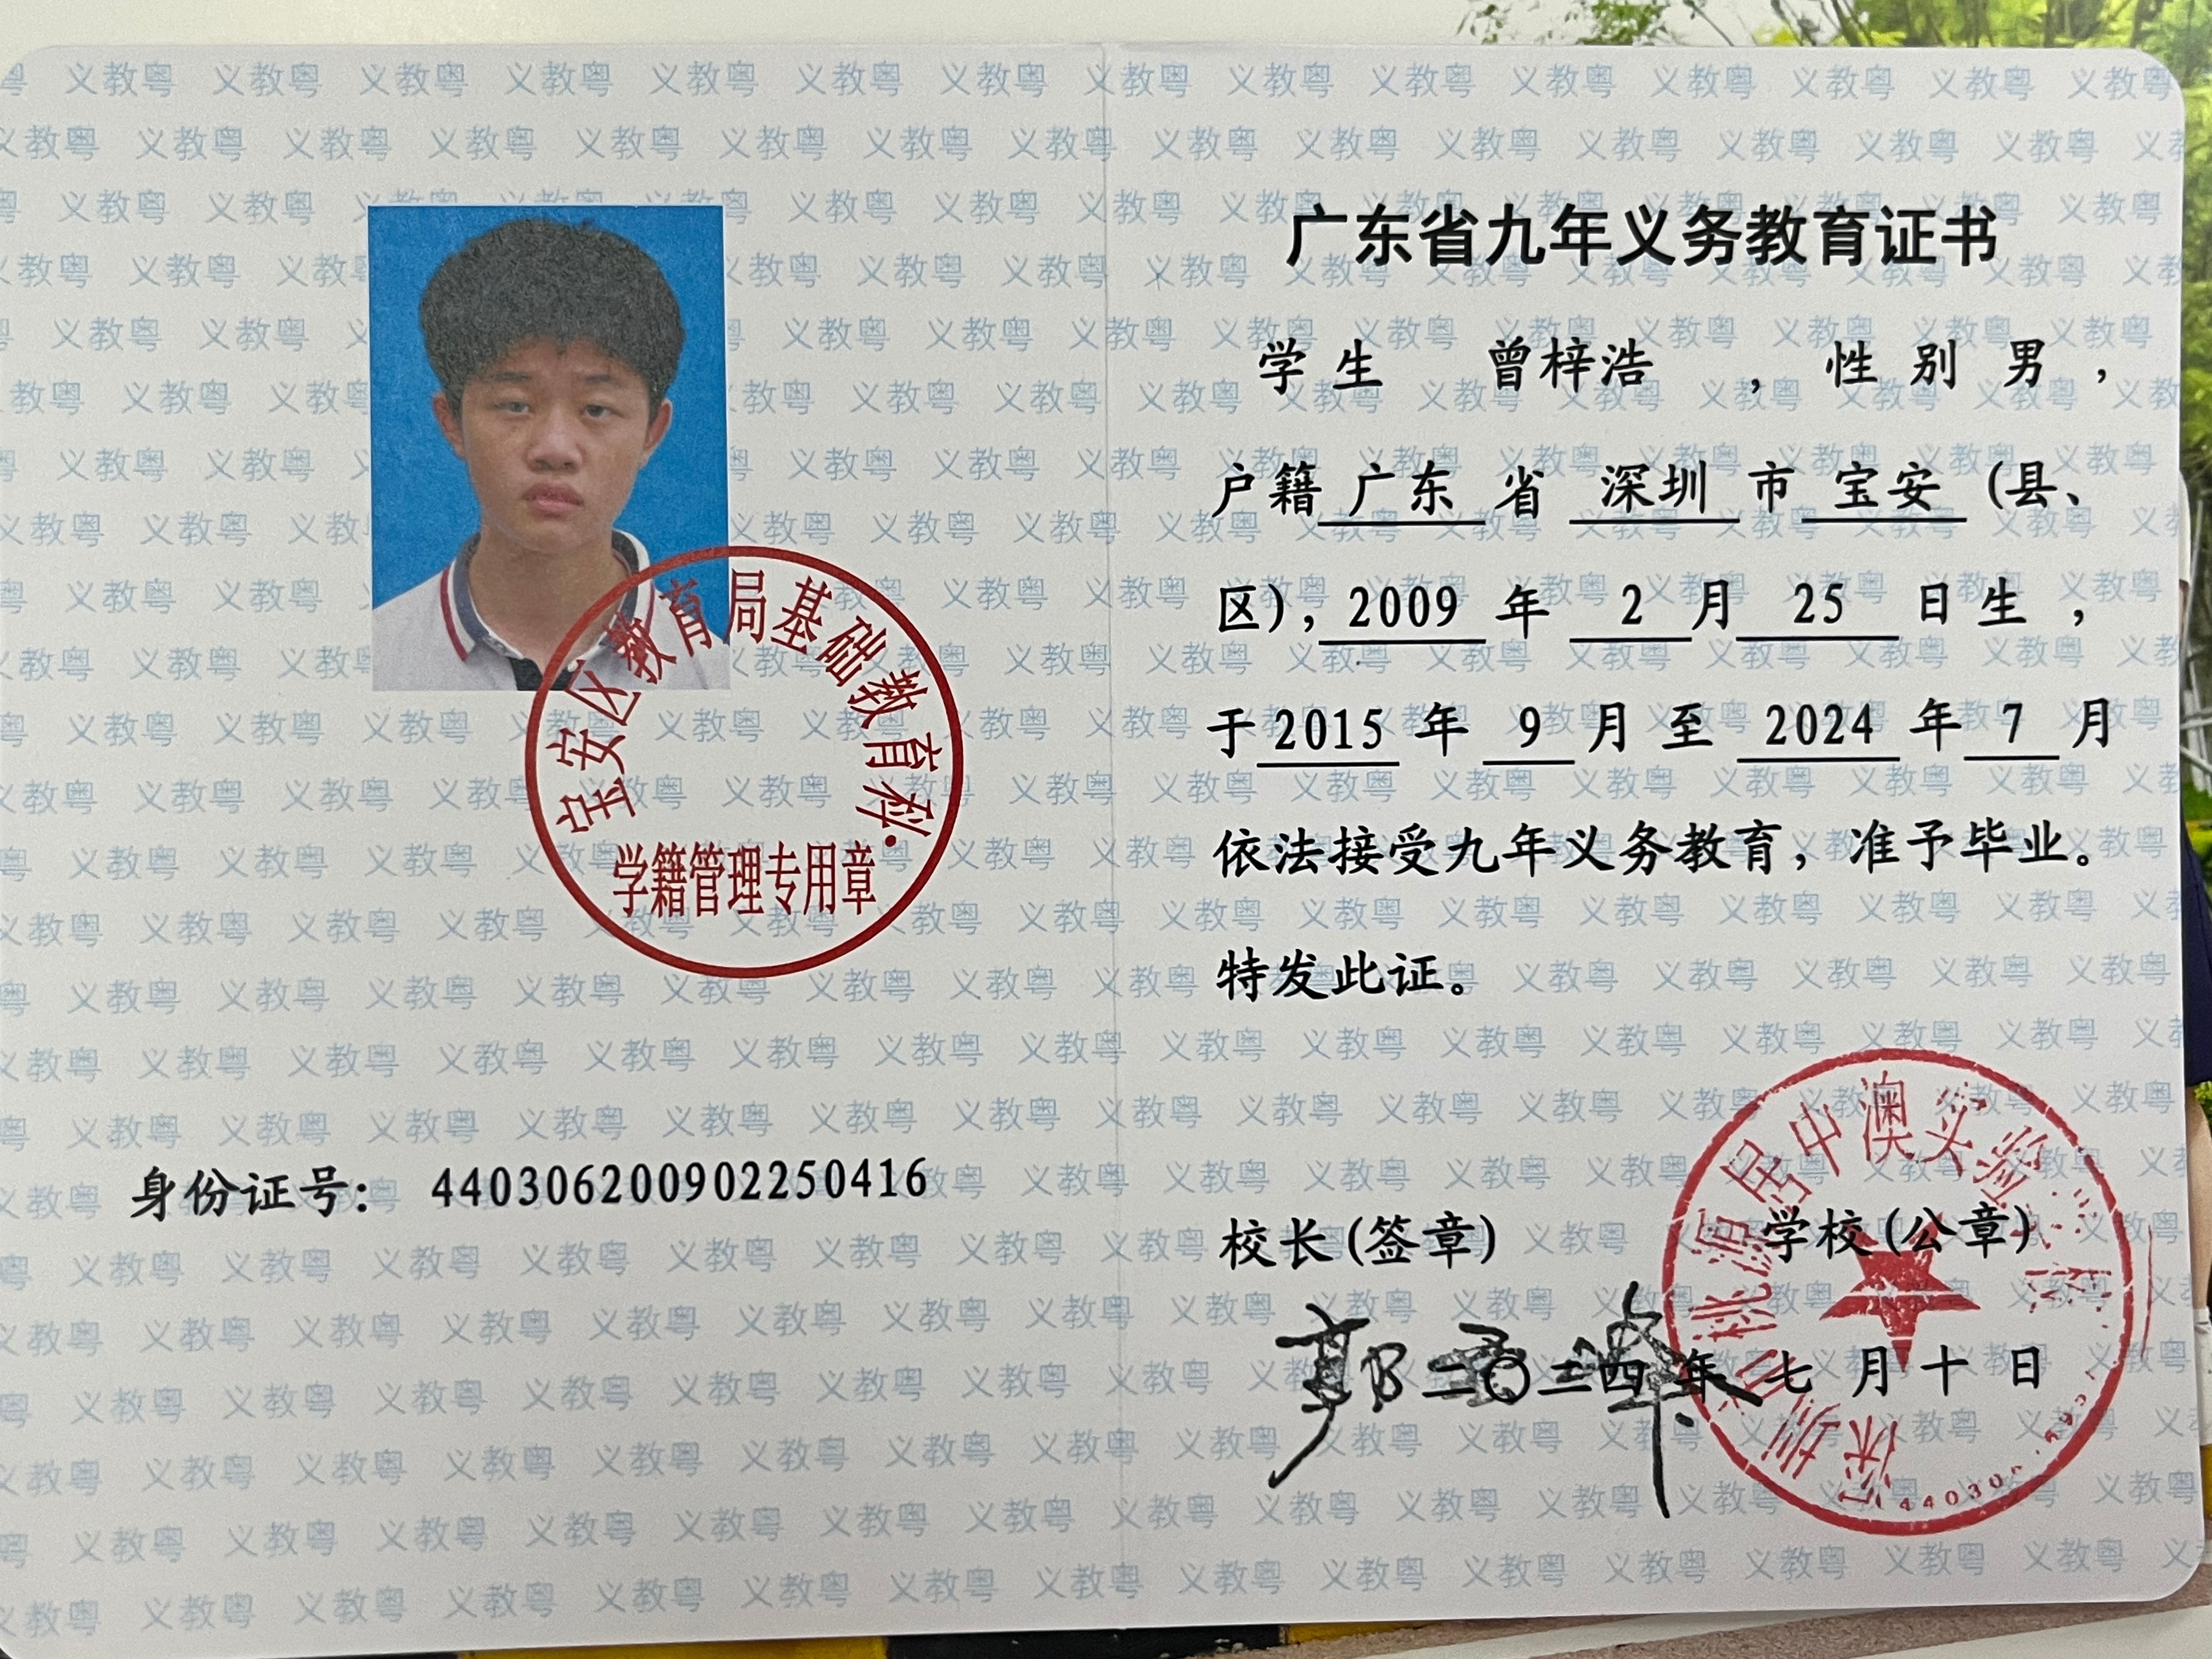 宝安区教育局基础教育科
学籍管理专用章
身份证号： 440306200902250416
广东省九年义务教育证书
学生 曾梓浩 ，性别 男 ，
户籍 广东 省 深圳 市 宝安 (县、
区)，2009 年 2 月 25 日生，
于 2015 年 9 月至 2024 年 7 月
依法接受九年义务教育，准予毕业。
特发此证。
校长(签章) 学校(公章)
二〇二四年七月十日
深圳市桃源居中澳实验
义教粤